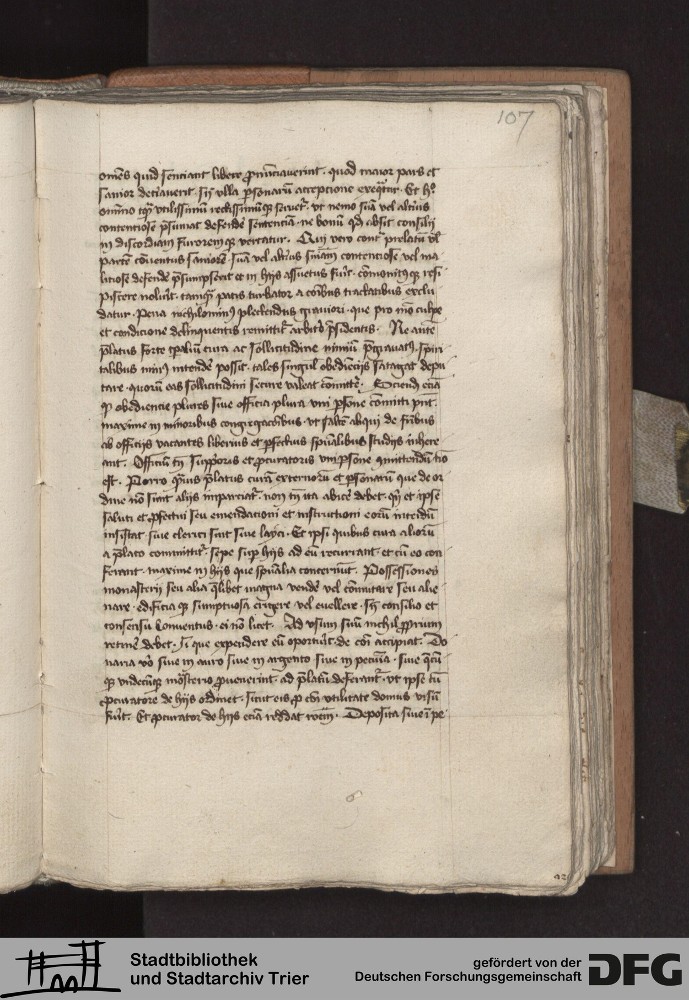 107
omnes quid senciant libere pronunciauerint. quod maior pars et
sanior decreuerit. sine vlla personarum accepcione exequatur. Et hoc
omnino tamquam vtilissimum rectissimumque seruetur. vt nemo suam vel alterius
contentiose presumat defendere sentenciam. ne bonum quod absit consilij
in discordiam furoremque vertatur. Qui vero contra prelatum vel
partem conuentus saniorem suam vel alterius sentenciam contenciose vel ma
liciose defendere presumpserit et in hijs assuetus fuerit. commonitusque resi
piscere noluerit. tamquam pacis turbator a communibus tractatibus exclu
datur. Pena nichilominus plectendus grauiori. que pro modo culpe
et condicione delinquentis remittitur arbitrio presidentis. Ne autem
prelatus forte temporalium cura ac sollicitudine nimium pregrauatus. spiri
talibus minus intendere possit. tales singulis obedienciis satagat depu
tare. quorum eas sollicitudini secure valeat committere. Sciendum eciam
quod obediencie plures siue officia plura vni persone committi possunt.
maxime in minoribus congregacionibus. vt saltem aliqui de fratribus
ab officijs vacantes liberius et perfectius spiritualibus studijs inhere
ant. Officium tamen supprioris et procuratoris vni persone committendum non
est. Porro quamuis prelatus curam exteriorum et personarum que de or
dine non sunt alijs imperciatur. non tamen ita abicere debet. quin et ipse
saluti et profectui seu emendacioni et instructioni eorum interdum
insistat siue clerici sint siue layci. Et ipsi quibus cura aliorum
a prelato committitur. sepe super hijs ad eum recurrant. et cum eo con
ferant. maxime in hijs que spiritualia concernunt. Possessiones
monasterij seu alia quelibet magna vendere vel commutare seu alie
nare. edificia quoque sumptuosa erigere vel euellere. sine consilio et
consensu Conuentus. ei non licet. Ad vsum suum nichil proprium
retinere debet. sed que expendere eum oportuerit. de communi accipiat. Do
naria vero siue in auro siue in argento siue in pecunia. siue quecumque
vndecumque monasterio prouenerint. ad prelatum deferantur. vt ipse cum
procuratore de hijs ordinet. sicut eis pro communi vtilitate domus visum
fuerit. Et procurator de hijs eciam reddat racionem. Deposita siue in pe
Stadtbibliothek
und Stadtarchiv Trier
gefördert von der
Deutschen Forschungsgemeinschaft
DFG